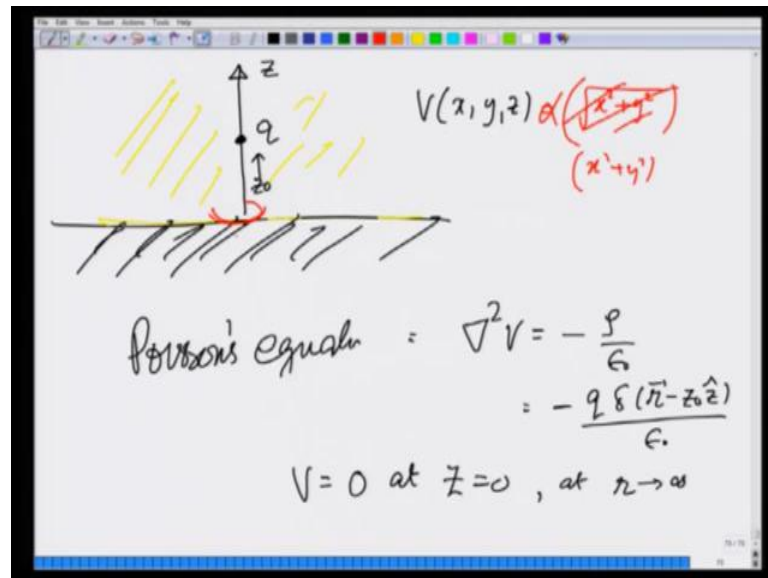 File Edit View Insert Actions Tools Help
z
q
z₀
V(x, y, z) α (√x²+y²)
(x²+y²)
Poisson's equatn : ∇²V = - ρ/ε₀
: - q δ(r⃗ - z₀ẑ)/ε₀
V = 0 at z = 0, at r → ∞